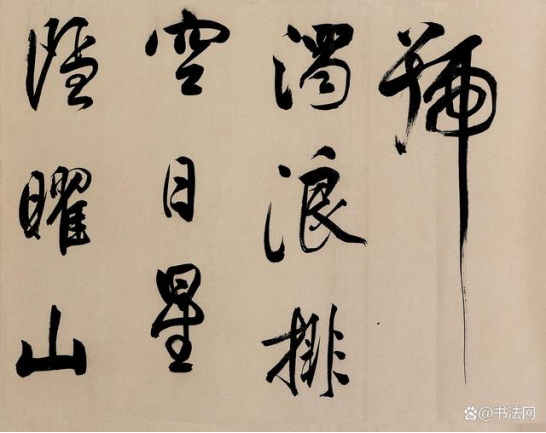 號
濁浪排
空日星
隱曜山
@书法网